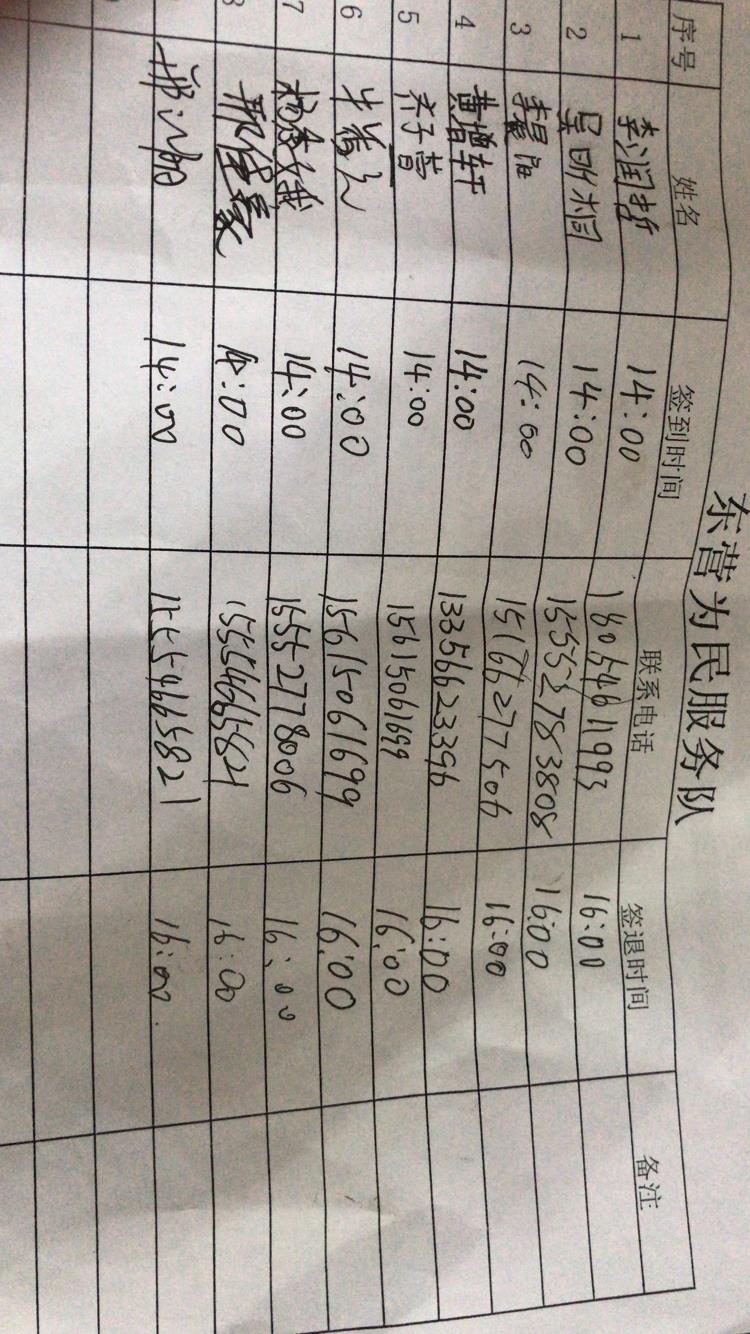 东营为民服务队
序号 姓名 签到时间 联系电话 签退时间 备注
1 李润哲 14:00 18054611993 16:00
2 吴明桐 14:00 15552783808 16:00
3 14:00 15166277506 16:00
4 黄增轩 14:00 13356623396 16:00
5 乔子营 14:00 15615061699 16:00
6 14:00 15615061699 16:00
7 14:00 15552778006 16:00
8 14:00 16:00
14:00 16:00